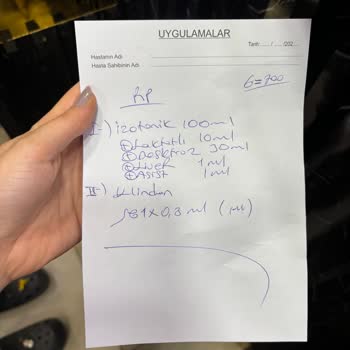 UYGULAMALAR
Tarih: ..... /..... /202...
Hastanın Adı
Hasta Sahibinin Adı
G=700
Rp
I-) izotonik 100ml
+ Laktatlı 10ml
+ Dekstroz 30ml
+ Livek 1ml
+ Asist 1ml
II-) Klindan
S81x0,3 ml (im)